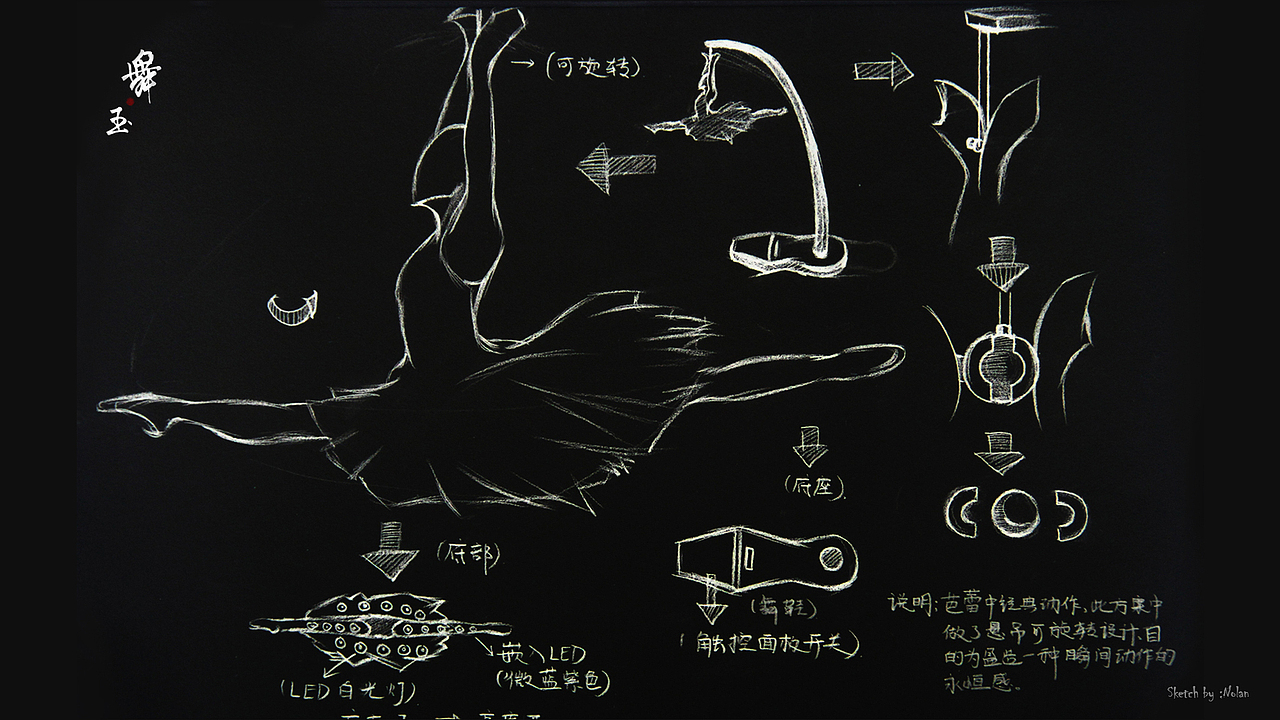 舞
玉
(可旋转)
(底座)
(底部)
嵌入LED
(微蓝紫色)
(LED白光灯)
(舞鞋)
(触控面板开关)
说明:芭蕾中经典动作,此方案中
做了悬吊可旋转设计.目
的为营造一种瞬间动作的
永恒感。
Sketch by :Nolan